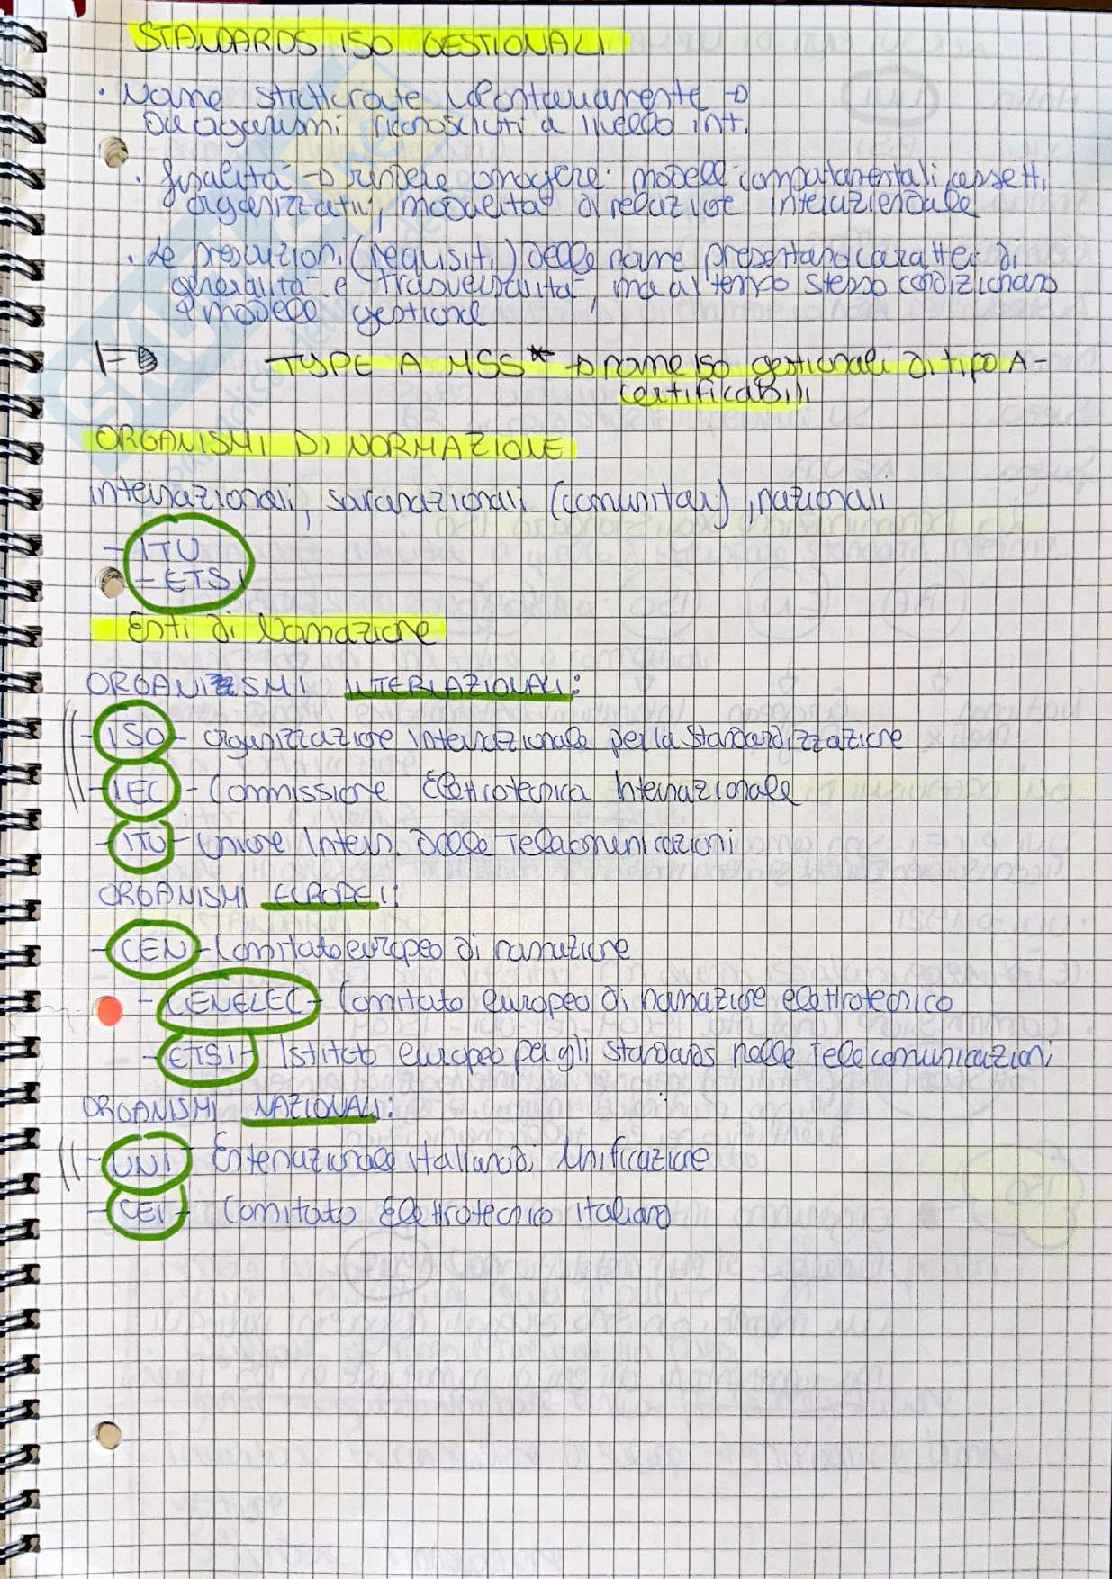 STANDARDS ISO GESTIONALI
• Norme strutturate volontariamente →
da organismi riconosciuti a livello int.
• finalità → rendere omogenei modelli comportamentali, assetti
organizzativi, modalità di relazione interaziendale
• Le prescrizioni (requisiti) delle norme presentano caratteri di
generalità e trasversalità, ma al tempo stesso condizionano
il modello gestione
TYPE A MSS* → norme ISO gestionali di tipo A -
certificabili
ORGANISMI DI NORMAZIONE
internazionali, sovranazionali (comunitari), nazionali
- ITU
- ETSI
Enti di Normazione
ORGANIZSMI INTERNAZIONALI:
- ISO - organizzazione internazionale per la standardizzazione
- IEC - Commissione Elettrotecnica Internazionale
- ITU - Unione Intern. delle Telecomunicazioni
ORGANISMI EUROPEI:
- CEN - Comitato europeo di normazione
- CENELEC - Comitato europeo di normazione elettrotecnico
- ETSI - Istituto europeo per gli standards nelle Telecomunicazioni
ORGANISMI NAZIONALI:
- UNI - Ente nazionale italiano di Unificazione
- CEI - Comitato Elettrotecnico italiano